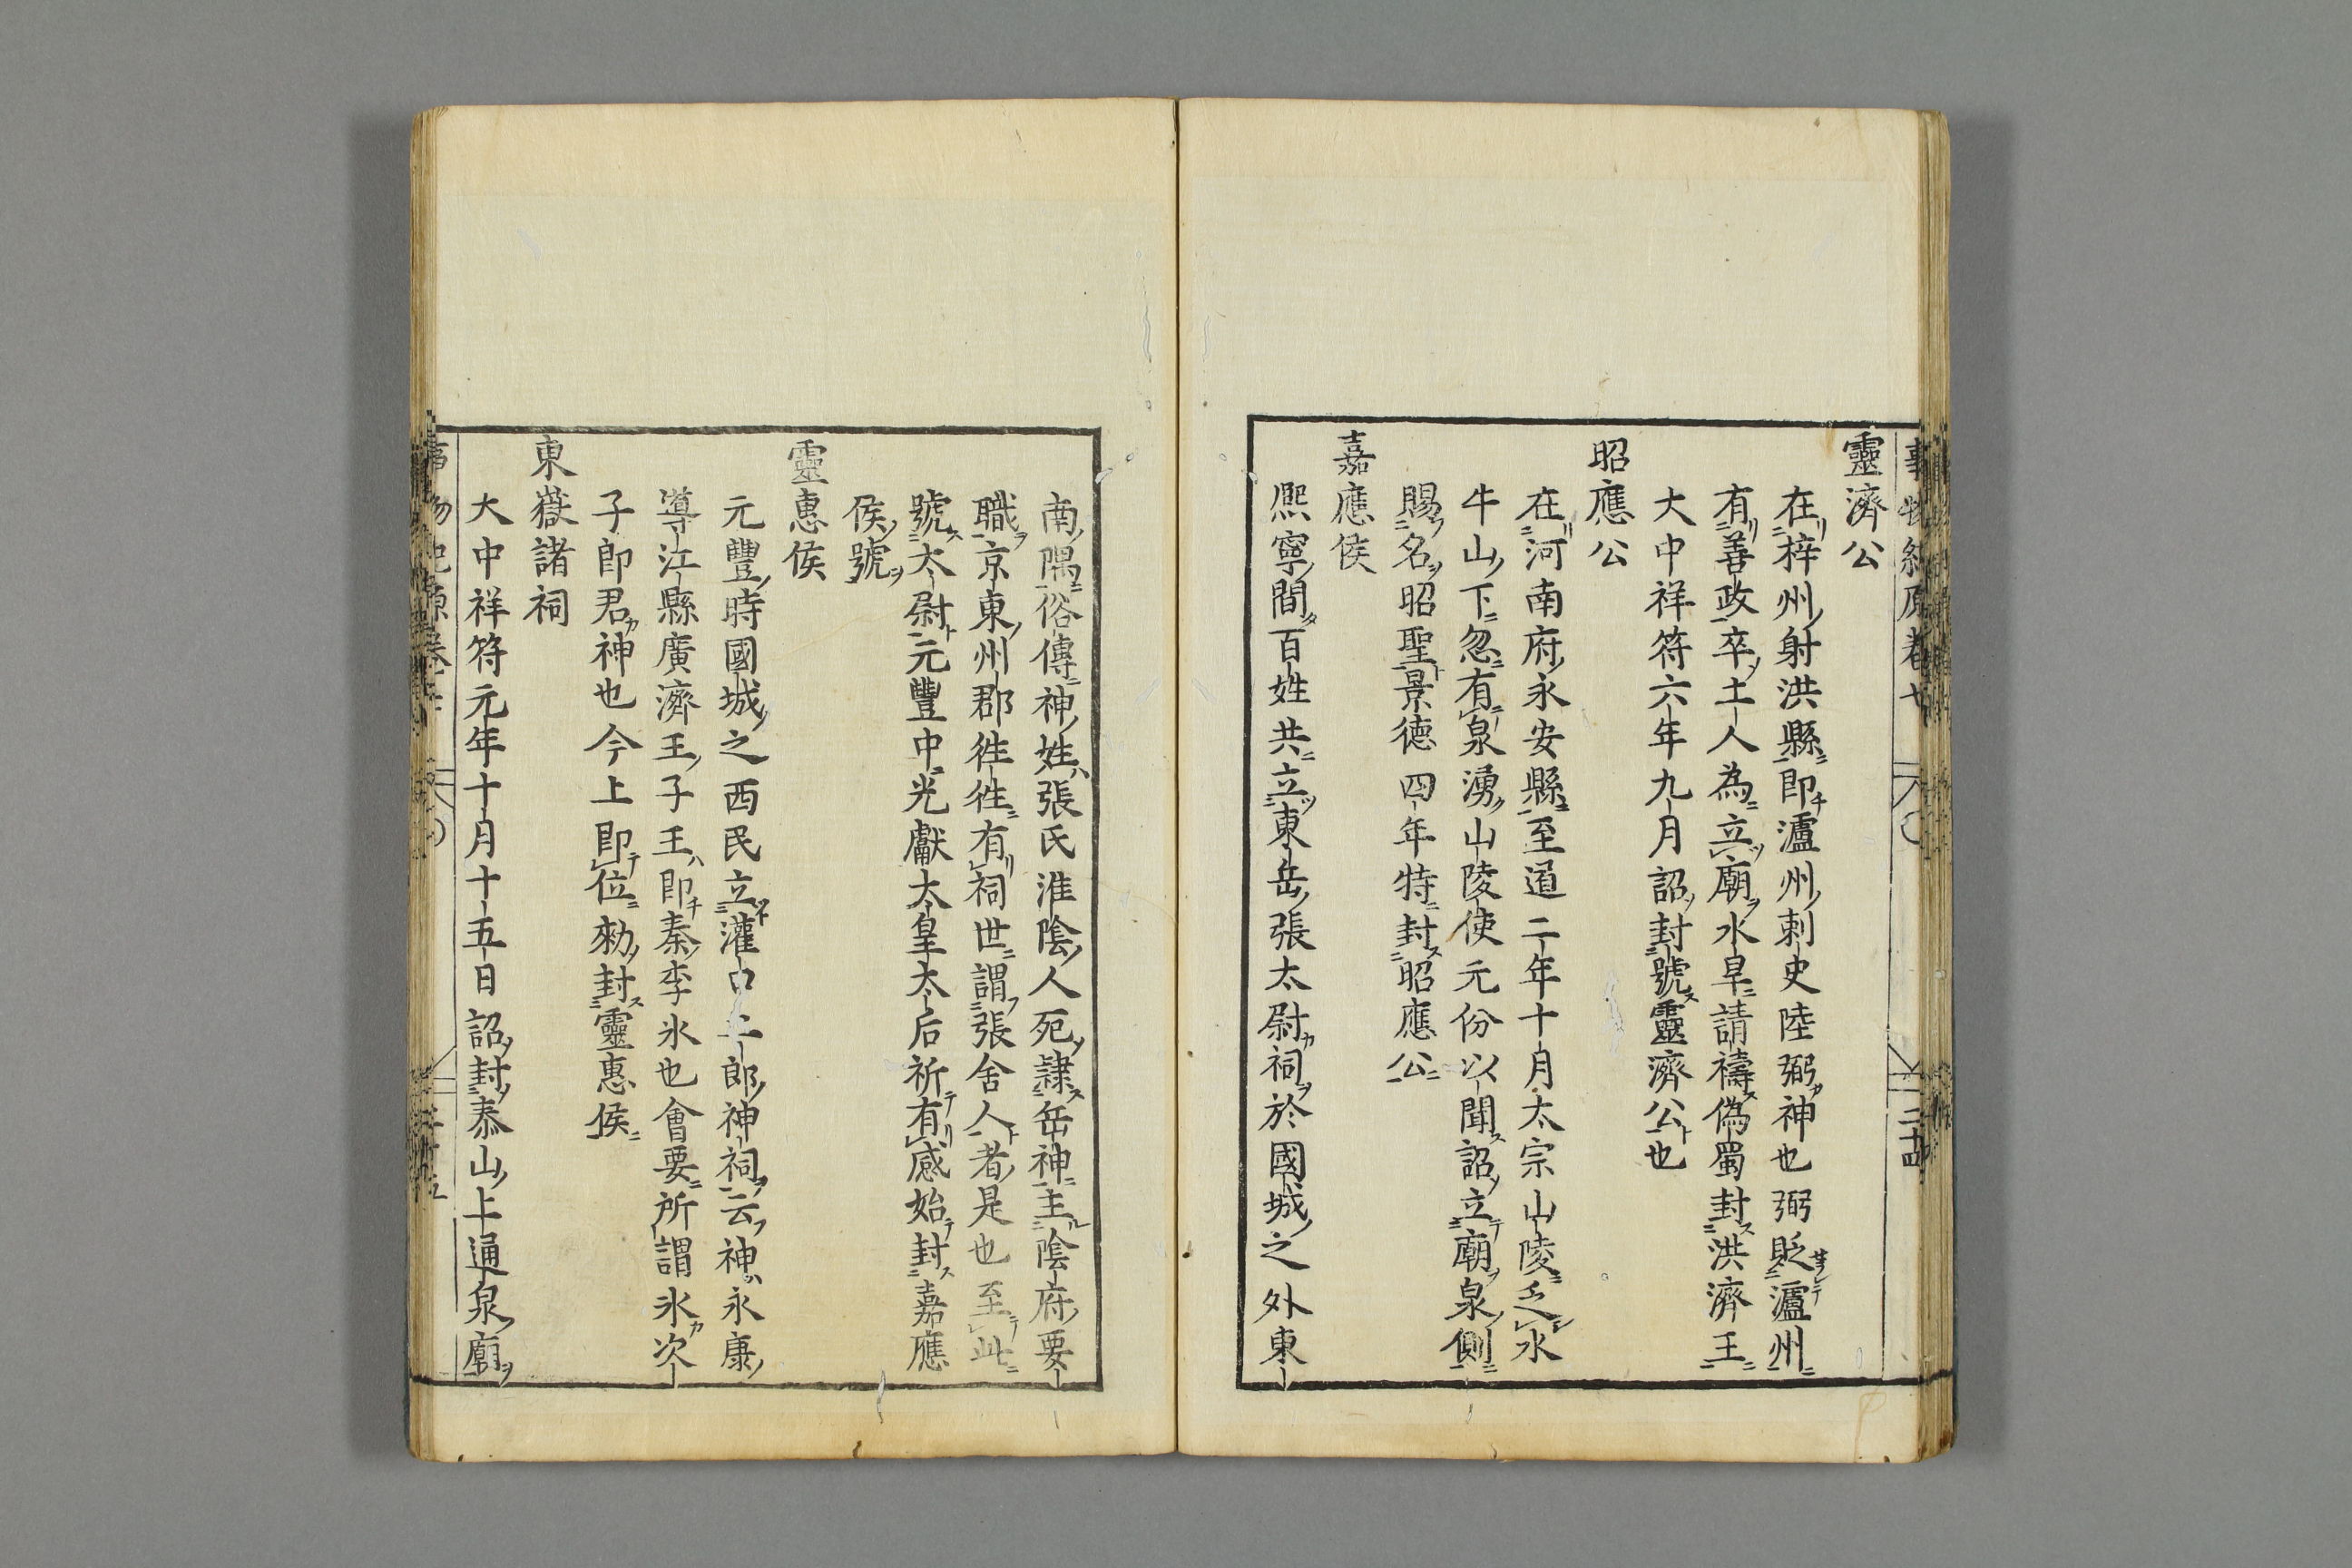 靈濟公
在梓州射洪縣即瀘州刺史陸弼神也弼貶瀘州
有善政卒土人為立廟水旱請禱偽蜀封洪濟王
大中祥符六年九月詔封號靈濟公也
昭應公
在河南府永安縣至道二年十月太宗山陵乏水
牛山下忽有泉湧山陵使元份以聞詔立廟泉側
賜名昭聖景德四年特封昭應公
嘉應侯
熈寧間百姓共立東岳張太尉祠於國城之外東
南隅俗傳神姓張氏淮陰人死隷岳神主陰府要
職京東州郡徃徃有祠世謂張舍人者是也至此
號太尉元豐中光獻太皇太后祈有感始封嘉應
侯號
靈惠侯
元豐時國城之西民立灌口二郎神祠云神永康
導江縣廣濟王子王即秦李氷也會要所謂氷次
子郎君神也今上即位勑封靈惠侯
東嶽諸祠
大中祥符元年十月十五日詔封泰山上通泉廟